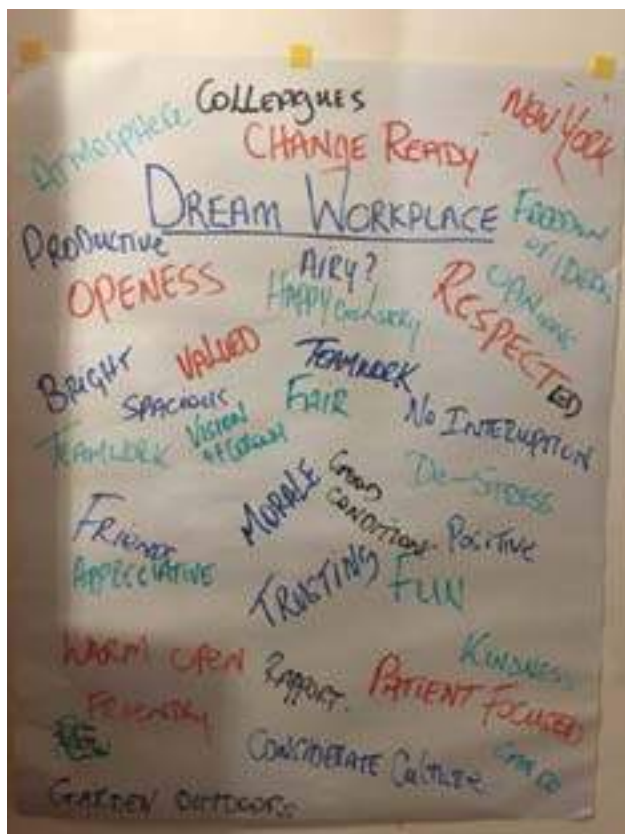 COLLEAGUES
ATMOSPHERE
CHANGE READY
NEW YORK
DREAM WORKPLACE
PRODUCTIVE
FREEDOM
OF IDEAS
OPENESS
AIRY?
HAPPY
OPINIONS
RESPECT ED
BRIGHT
VALUED
TEAMWORK
SPACIOUS
FAIR
NO INTERUPTION
TEAMWORK
VISION
DE-STRESS
MORALE
GOOD
CONDITIONS
POSITIVE
FRIENDS
APPRECIATIVE
TRUSTING
FUN
KINDNESS
WARM OPEN
RAPPORT.
PATIENT FOCUSED
FRIENDLY
CONSIDERATE CULTURE
GARDEN OUTDOORS